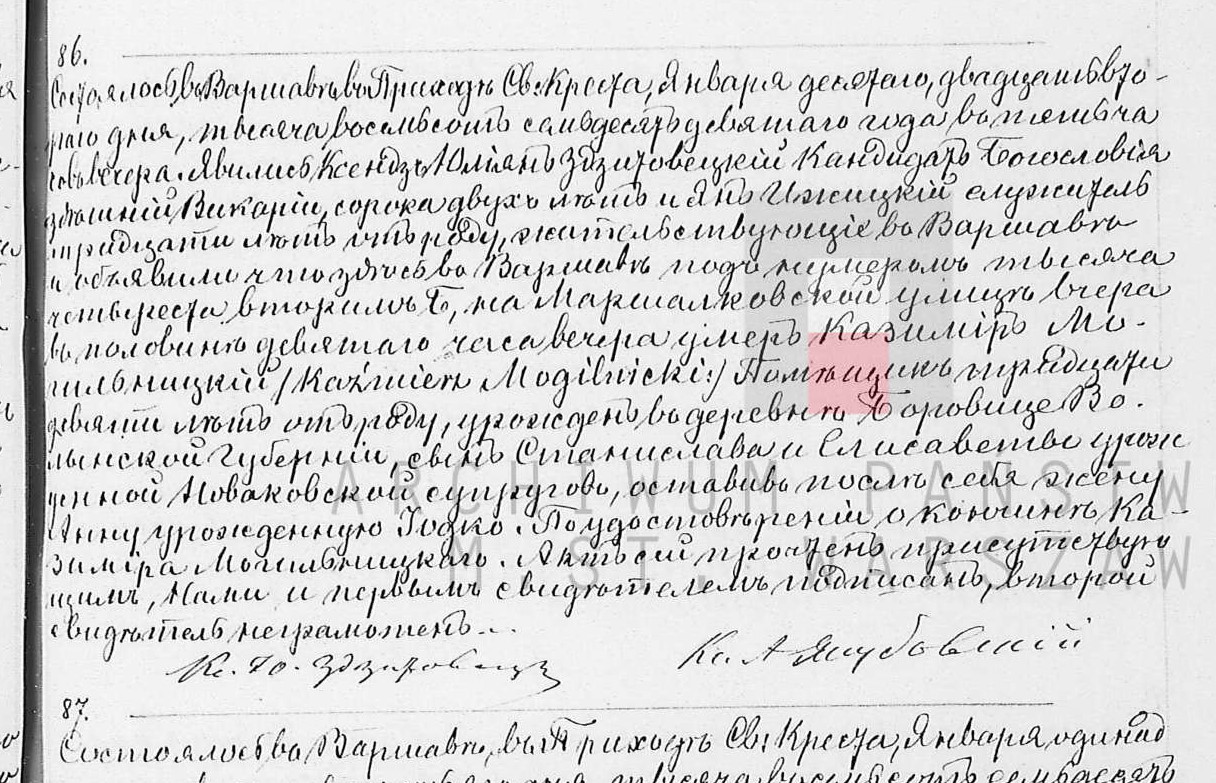 86.
Состоялось въ Варшавѣ въ Приходѣ Св: Креста, Января десятаго, двадцать вто-
раго дня, тысяча восемьсотъ семьдесятъ девятаго года въ пять ча
совъ вечера. Явились Ксендзъ Юліянъ Здзитовецкій Кандидатъ Богословія
здѣшній Викарій, сорока двухъ лѣтъ и Янъ Ижицкій служитель
тридцати лѣтъ отъ роду, жительствующіе въ Варшавѣ
и объявили что здѣсь въ Варшавѣ подъ нумеромъ тысяча
четыреста вторымъ Б, на Маршалковской улицѣ вчера
въ половинѣ девятаго часа вечера умеръ Казиміръ Мо-
гильницкій /Kaźmierz Mogilnicki:/ Помѣщикъ тридцати
девяти лѣтъ отъ роду, урожденъ въ деревнѣ Боровице Во-
лынской Губерніи, сынъ Станислава и Елисаветы урож
денной Новаковской супруговъ, оставивъ послѣ себя жену
Анну урожденную Іодко. По удостовѣреніи о кончинѣ Ка-
зиміра Могильницкаго. Актъ сей прочтенъ присутствую
щимъ, Нами и первымъ свидѣтелемъ подписанъ, второй
свидѣтель неграмотенъ...
Кс. Ю. Кс. А Якубовскій
87.
Состоялось въ Варшавѣ, въ Приходѣ Св: Креста, Января одинад
тысяча восемьсотъ семьдесятъ
ARCHIWUM PAŃSTW
M ST WARSZAW